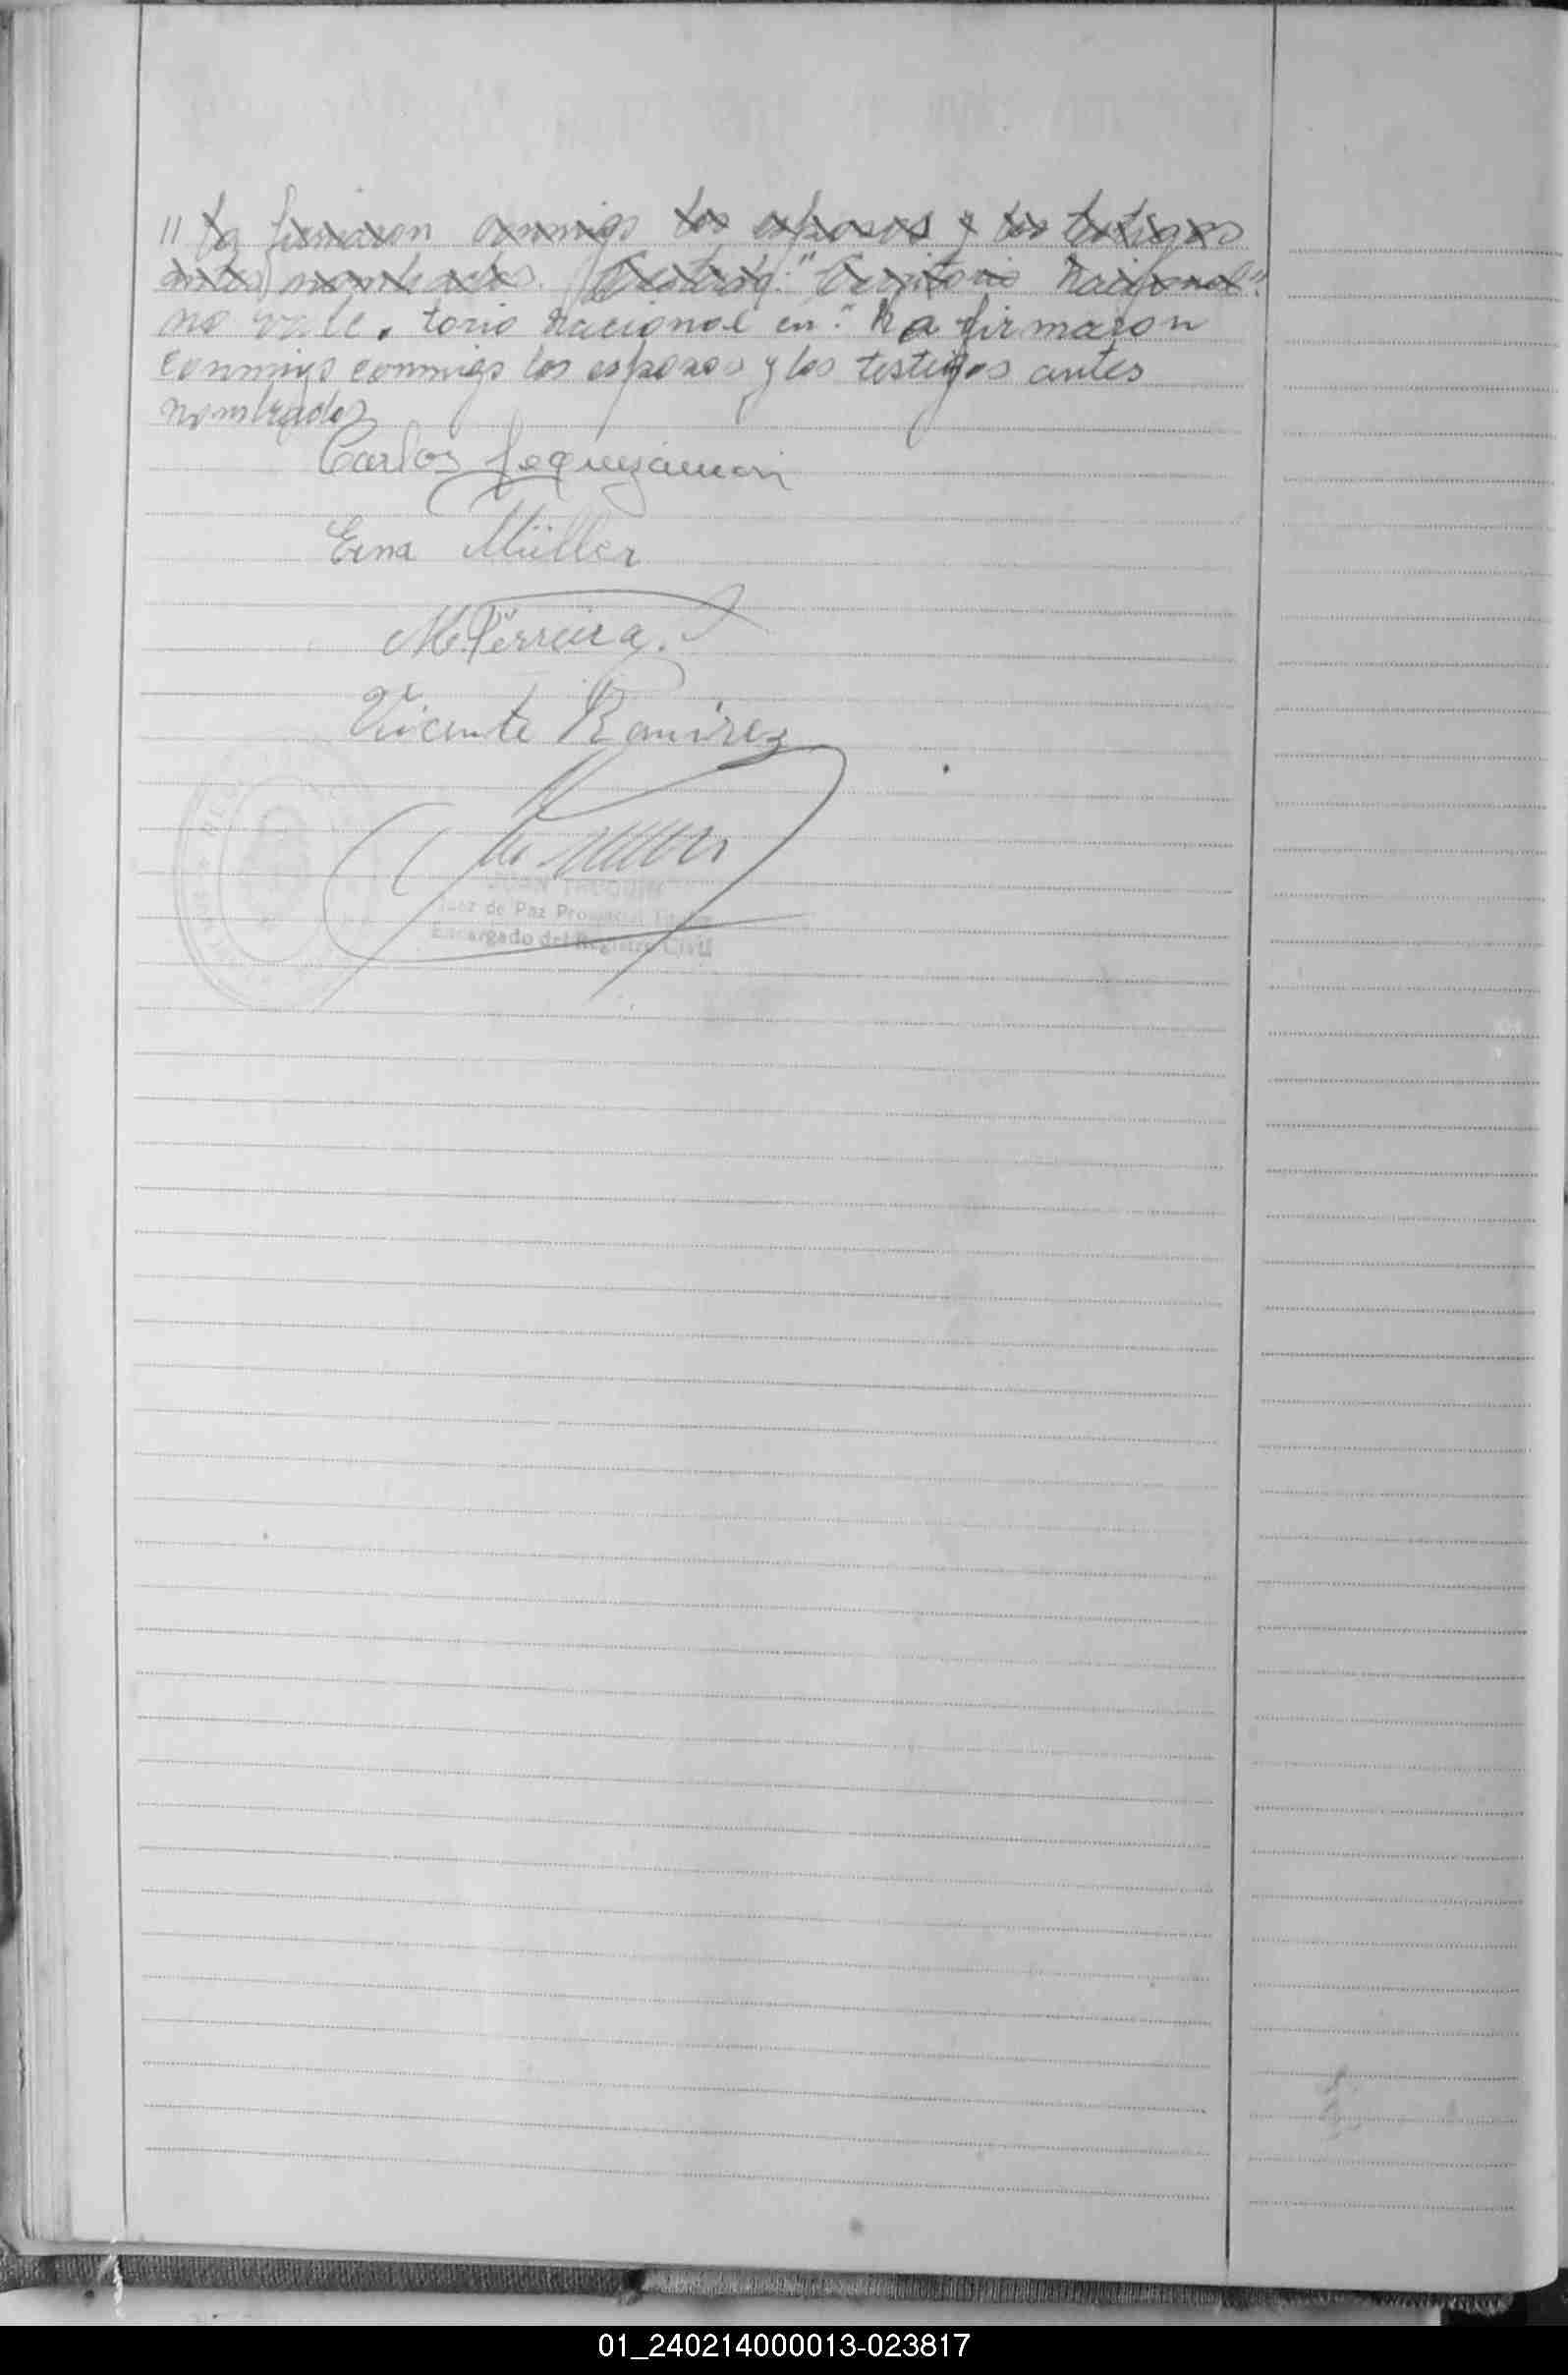 " la firmaron conmigo los esposos y los testigos
antes nombrados. Testado: "Territorio Nacional"
no vale. torio Nacional en." La firmaron
conmigo conmigo los esposos y los testigos antes
nombrados
Carlos Leguizamon
Erna Müller
M. Ferreira.
Vicente Ramirez
JUAN
Juez de Paz Provincial Titular
Encargado del Registro Civil
01_240214000013-023817